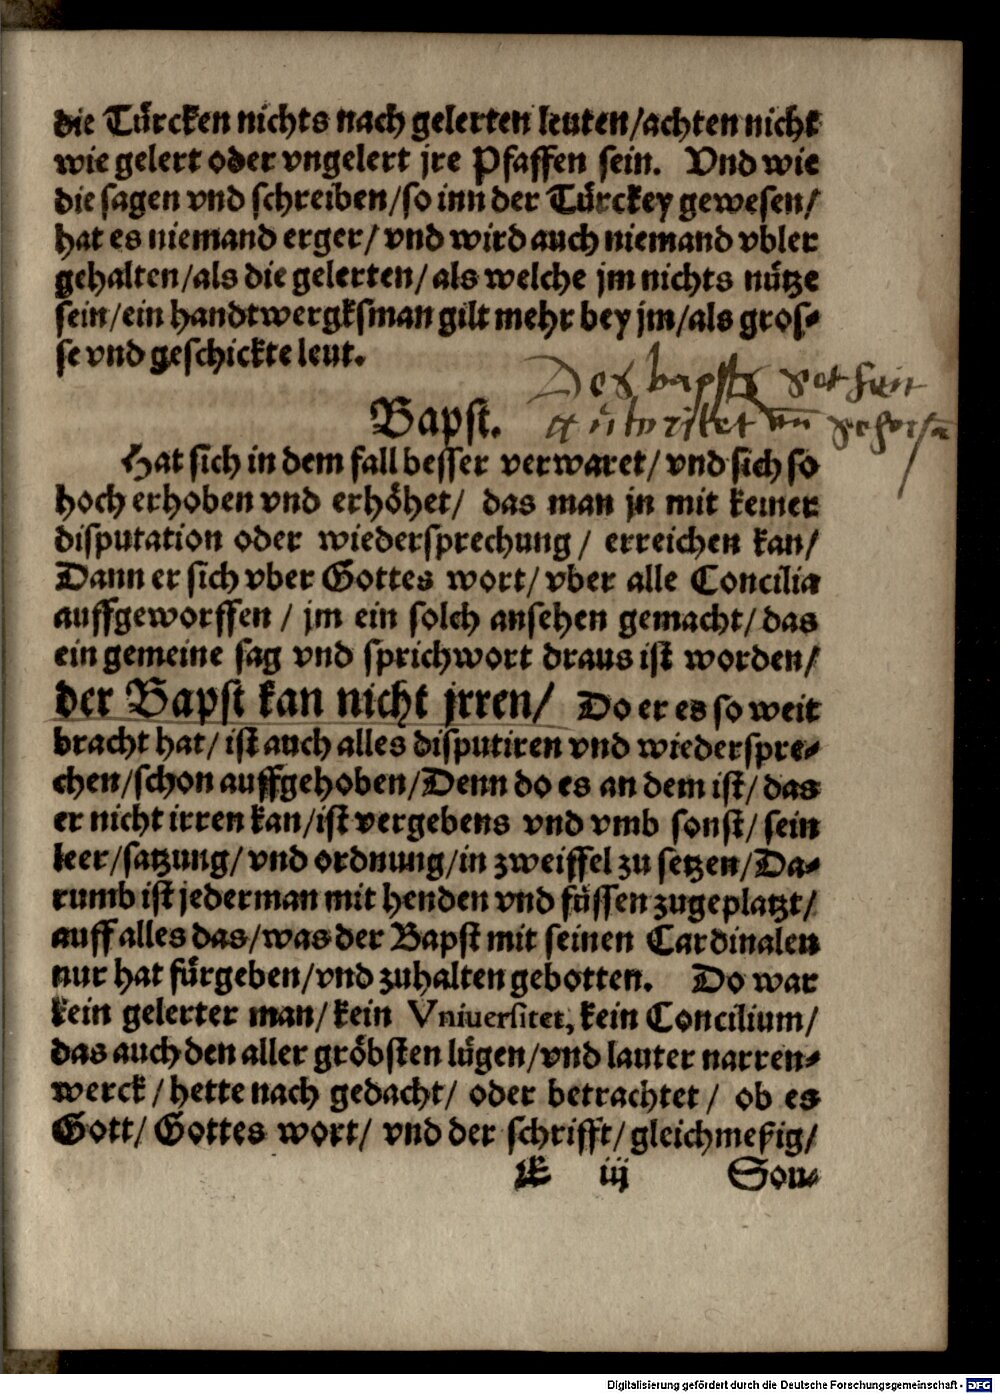 die Türcken nichts nach gelerten leuten/achten nicht
wie gelert oder vngelert jre Pfaffen sein. Vnd wie
die sagen vnd schreiben/so inn der Türckey gewesen/
hat es niemand erger/ vnd wird auch niemand vbler
gehalten/als die gelerten/ als welche jm nichts nütze
sein/ein handtwergksman gilt mehr bey jm/als gros-
se vnd geschickte leut.
Des bapsts
Bapst.
Hat sich in dem fall besser verwaret/ vnd sich so
hoch erhoben vnd erhöhet/ das man jn mit keiner
disputation oder wiedersprechung/ erreichen kan/
Dann er sich vber Gottes wort/ vber alle Concilia
auffgeworffen / jm ein solch ansehen gemacht/ das
ein gemeine sag vnd sprichwort draus ist worden/
der Bapst kan nicht jrren/ Do er es so weit
bracht hat/ ist auch alles disputiren vnd wiederspre-
chen/schon auffgehoben/Denn do es an dem ist/ das
er nicht irren kan/ist vergebens vnd vmb sonst/ sein
leer/satzung/ vnd ordnung/in zweiffel zu setzen/Da-
rumb ist jederman mit henden vnd füssen zugeplatzt/
auff alles das/was der Bapst mit seinen Cardinalen
nur hat fürgeben/vnd zuhalten gebotten. Do war
kein gelerter man/ kein Vniuersitet, kein Concilium/
das auch den aller gröbsten lügen/vnd lauter narren-
werck / hette nach gedacht/ oder betrachtet / ob es
Gott/ Gottes wort/ vnd der schrifft/ gleichmeßig/
E iij Son-
Digitalisierung gefördert durch die Deutsche Forschungsgemeinschaft - DFG